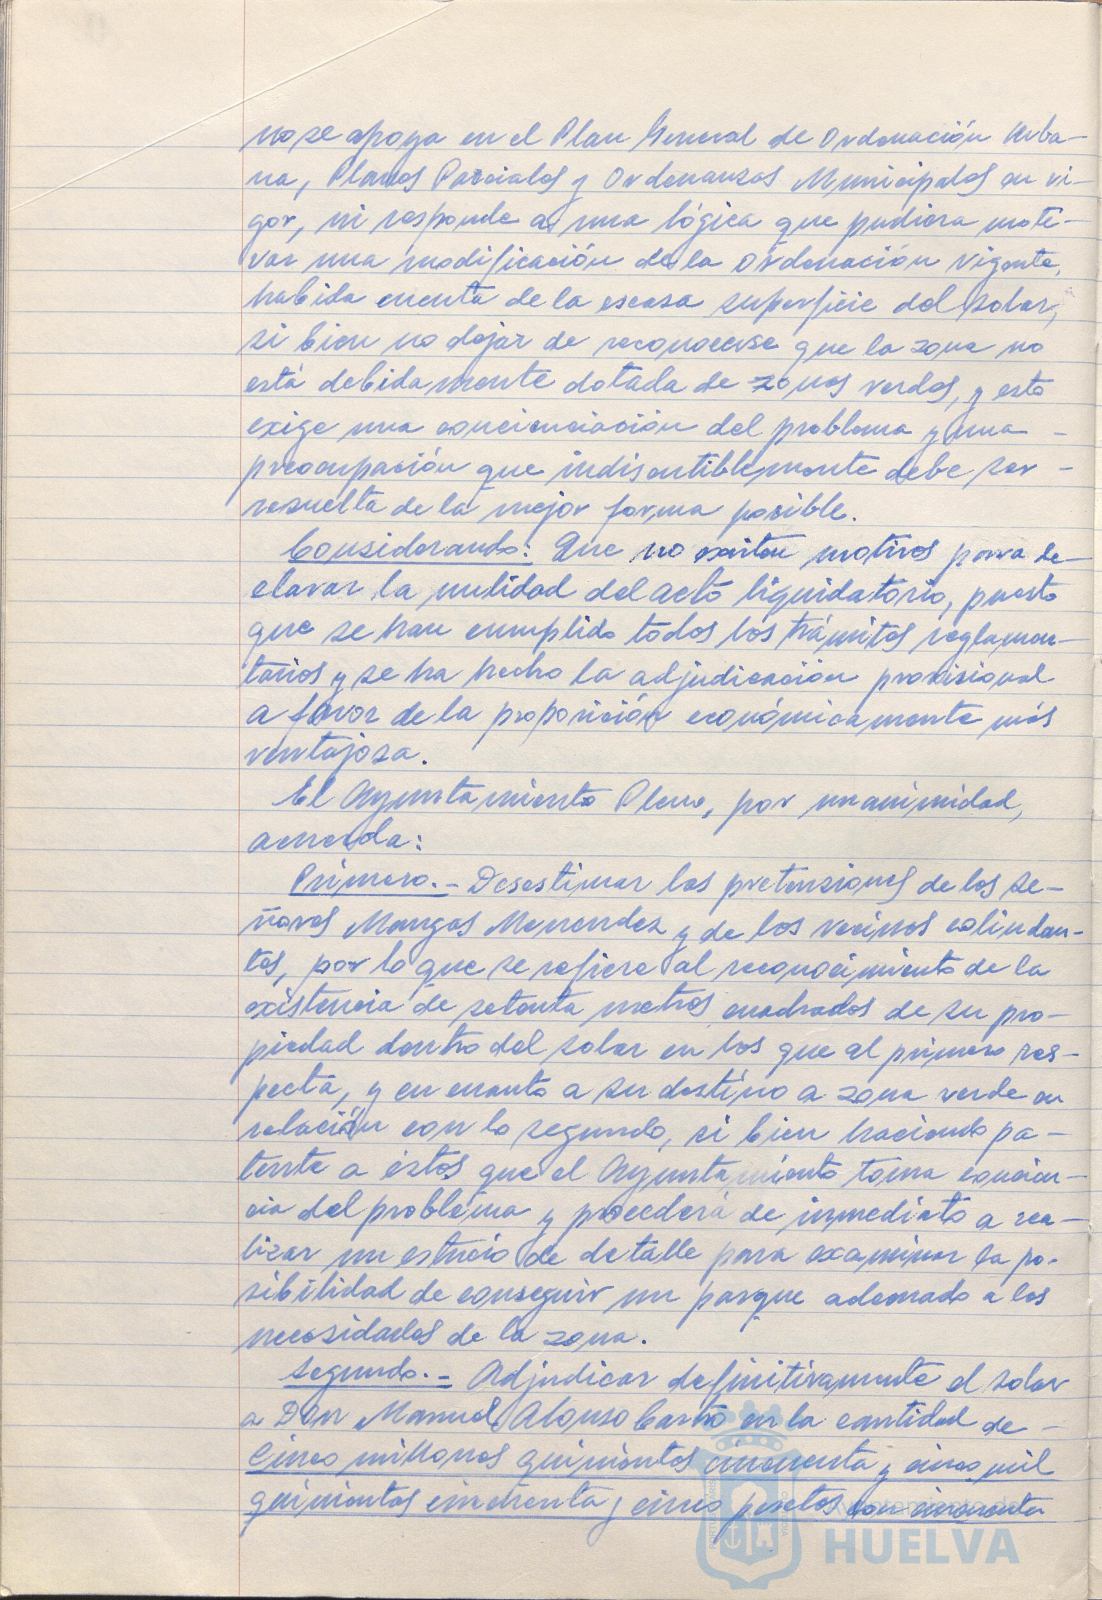 no se apoya en el Plan General de Ordenación Urba-
na, Planes Parciales y Ordenanzas Municipales en vi-
gor, ni responde a una lógica que pudiera moti-
var una modificación de la Ordenación vigente,
habida cuenta de la escasa superficie del solar,
si bien no dejar de reconocerse que la zona no
está debidamente dotada de zonas verdes, y esto
exige una concienciación del problema y una -
preocupación que indiscutiblemente debe ser -
resuelta de la mejor forma posible.
Considerando: Que no existen motivos para de-
clarar la nulidad del acto liquidatorio, puesto
que se han cumplido todos los trámites reglamen-
tarios y se ha hecho la adjudicación provisional
a favor de la proposición económicamente más
ventajosa.
El Ayuntamiento Pleno, por unanimidad,
acuerda:
Primero.- Desestimar las pretensiones de los Se-
ñores Mangas Menendez y de los vecinos colindan-
tes, por lo que se refiere al reconocimiento de la
existencia de setenta metros cuadrados de su pro-
piedad dentro del solar en los que al primero res-
pecta, y en cuanto a su destino a zona verde en
relación con lo segundo, si bien haciendo pa-
tente a éstos que el Ayuntamiento toma concien-
cia del problema y procederá de inmediato a rea-
lizar un estucio de detalle para examinar la po-
sibilidad de conseguir un parque adecuado a las
necesidades de la zona.
Segundo.- Adjudicar definitivamente el solar
a Don Manuel Alonso Castro en la cantidad de -
Cinco millones quinientos cincuenta y cinco mil
quinientas cincuenta y cinco pesetas con cincuenta
Ayuntamiento de
HUELVA